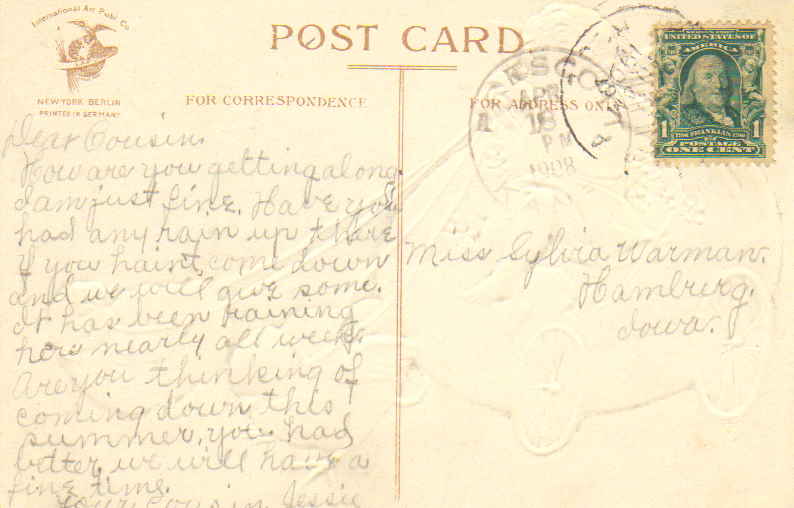 International Art Publ. Co.
NEW YORK BERLIN
PRINTED IN GERMANY
POST CARD
FOR CORRESPONDENCE
FOR ADDRESS ONLY
APR
18
PM
1908
SERIES 1902
UNITED STATES OF
AMERICA
1 1
FRANKLIN
POSTAGE
ONE CENT
Dear Cousin.
How are you getting along.
I am just fine. Have you
had any rain up there
if you haint, come down
and we will give some.
It has been raining
here nearly all week.
Are you thinking of
coming down this
summer, you had
better we will have a
fine time.
Your Cousin Jessie
Miss Sylvia Warman.
Hamburg.
Iowa.